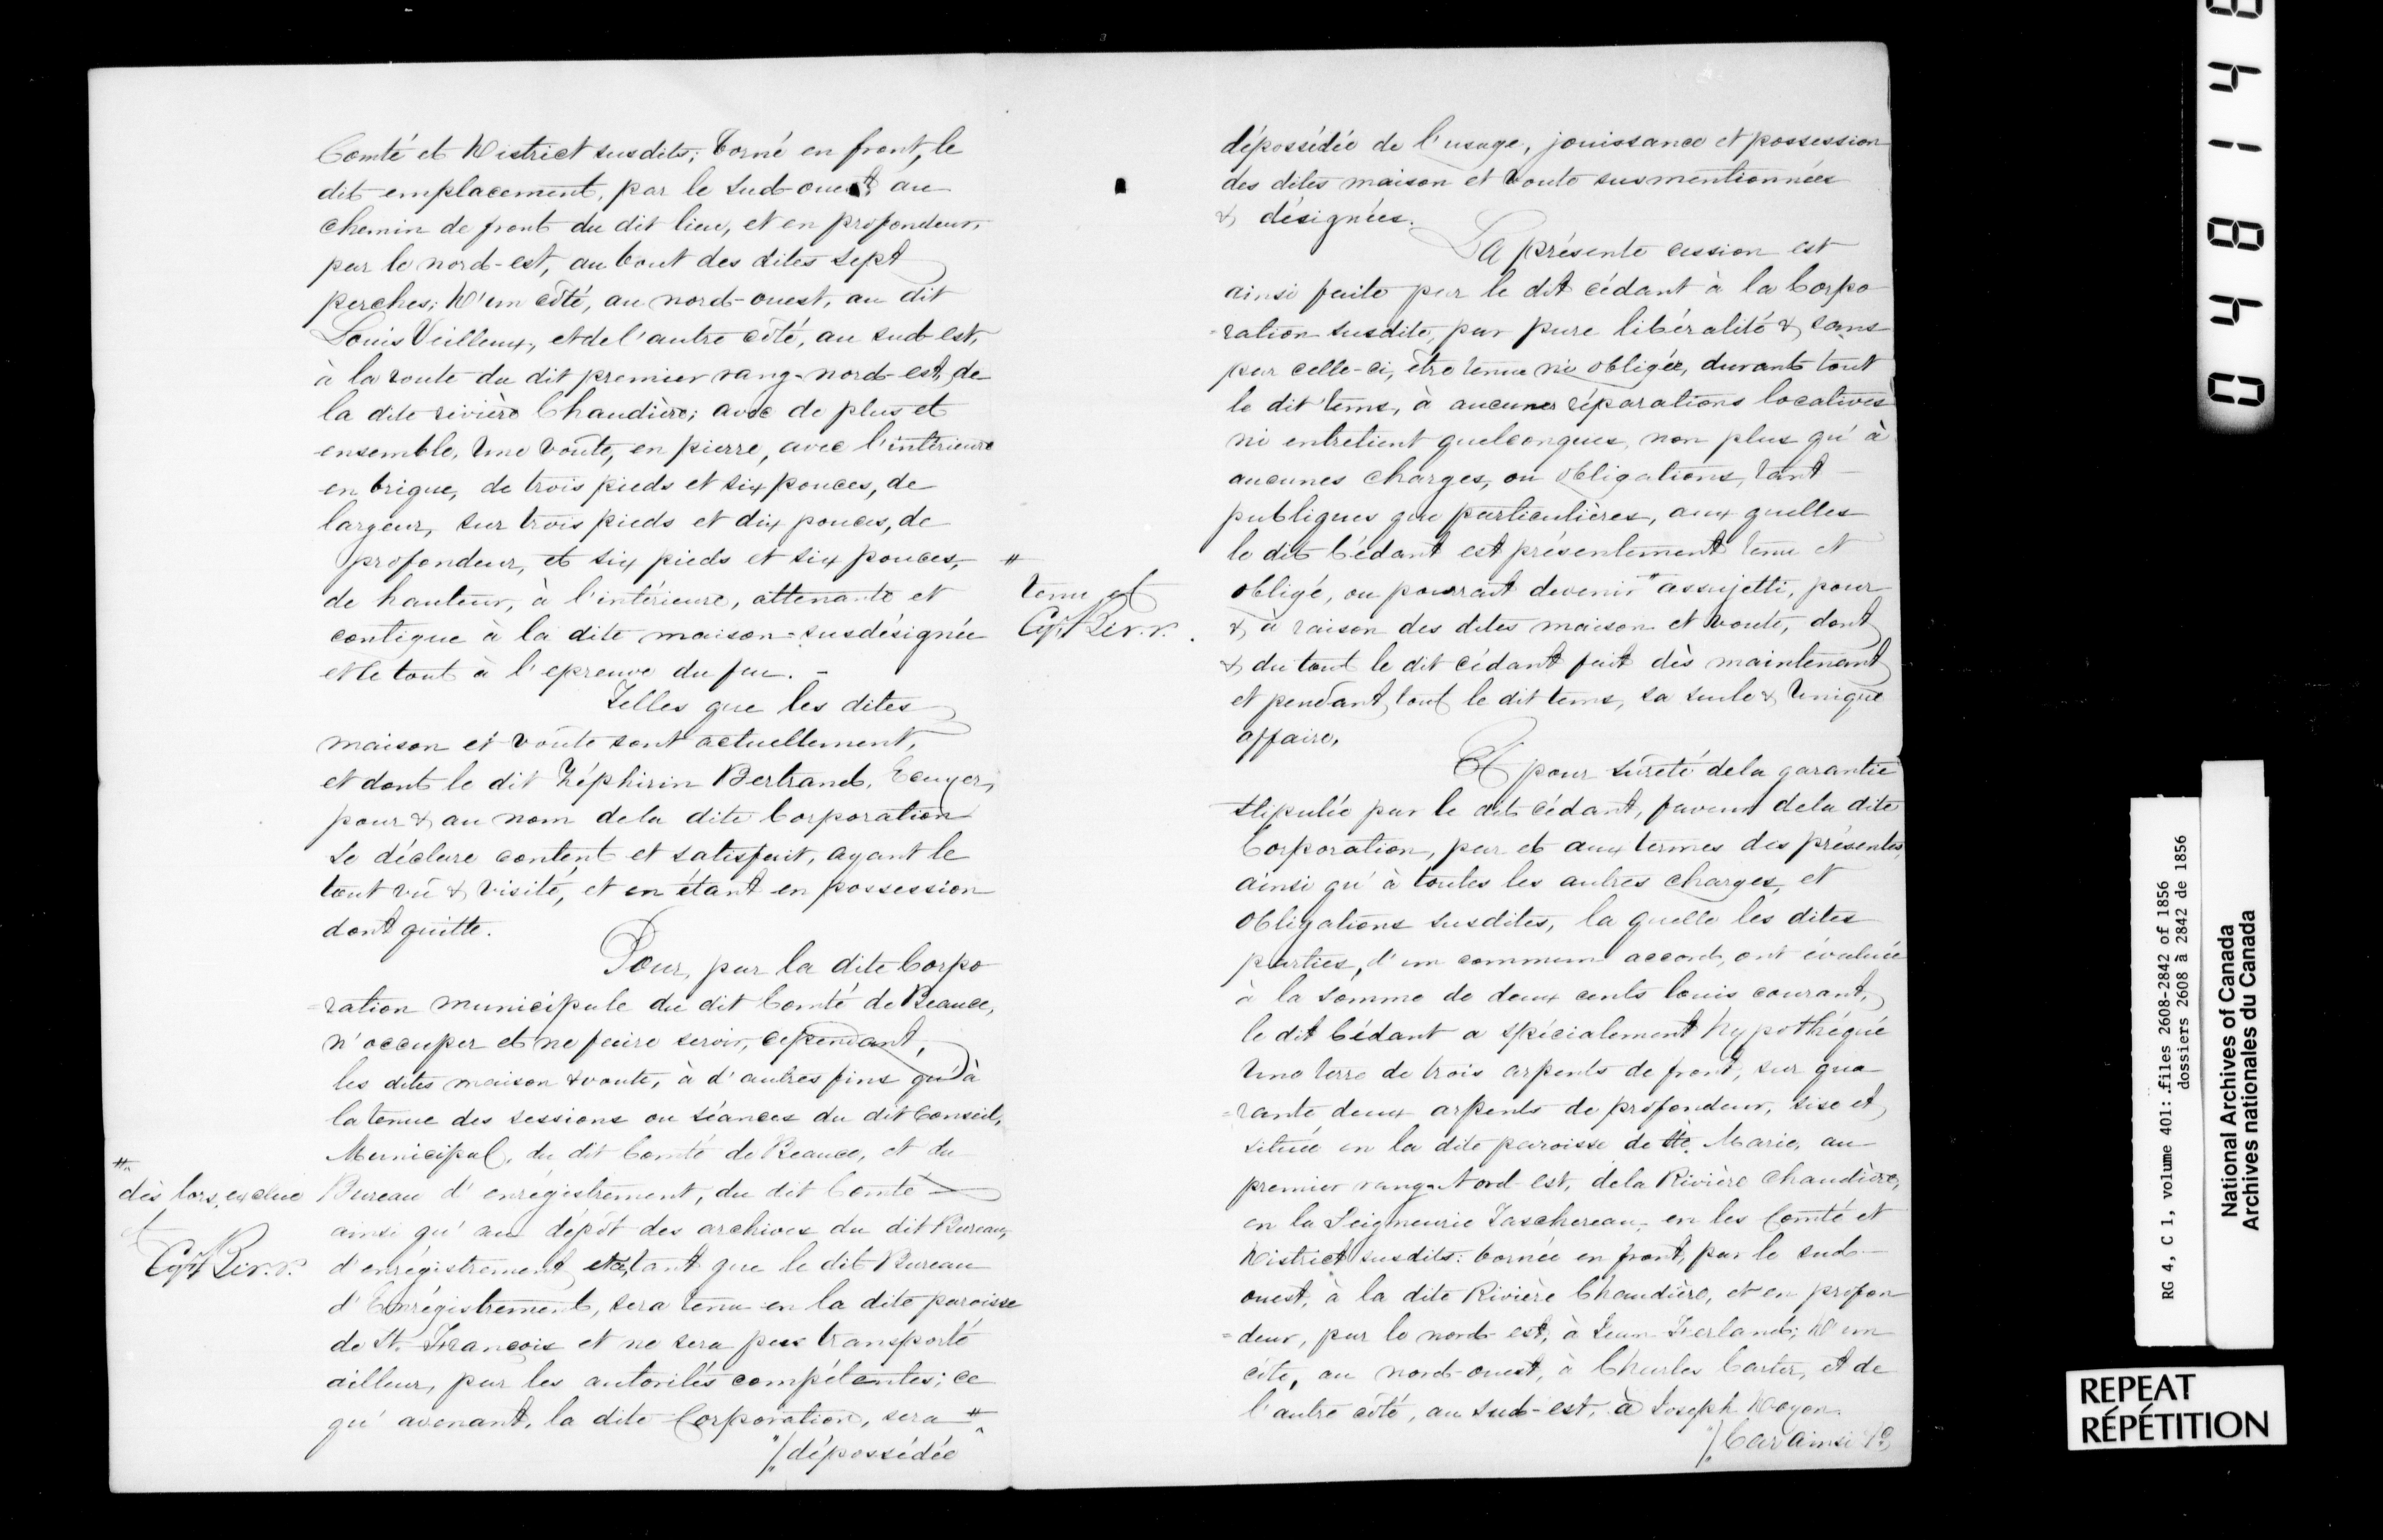 Comté et District susdits; borné en front, le
dit emplacement, par le sud-ouest, au
chemin de front du dit lieu, et en profondeur,
par le nord-est, au bout des dites sept
perches; d'un côté, au nord-ouest, au dit
Louis Veilleux, et de l'autre côté, au sud-est,
à la route du dit premier rang-nord-est, de
la dite rivière Chaudière; avec de plus et
ensemble, une voûte, en pierre, avec l'intérieure
en brique, de trois pieds et six pouces, de
largeur, sur trois pieds et dix pouces, de
profondeur, et six pieds et six pouces,
de hauteur, à l'intérieure, attenante et
contigue à la dite maison-susdésignée
et le tout à l'epreuve du feu. -
Telles que les dites
maison et voûte sont actuellement,
et dont le dit Zéphirin Bertrand, Ecuyer,
pour & au nom de la dite Corporation
se déclare content et satisfait, ayant le
tout vû & visité, et en étant en possession
dont quitte.
Pour, par la dite Corpo
=ration municipale du dit Comté de Beauce,
n'occuper et ne faire servir, cependant,
les dites maison & voute, à d'autres fins qu'à
la tenue des sessions ou séances du dit Conseil,
Municipal, du dit Comté de Beauce, et du
Bureau d'enrégistrement, du dit Comté
ainsi qu'au dépôt des archives du dit Bureau,
d'enrégistrement, tant que le dit Bureau
d'Enrégistrement, sera tenu en la dite paroisse
de St. François et ne sera pas transporté
ailleur, par les autorités compétentes; ce
qu'avenant, la dite Corporation, sera #
/dépossédée
#
dès lors, exclue
et
dépossédée de l'usage, jouissance et possession
des dites maison et voute susmentionnées
& désignées.
La présente cession est
ainsi faite par le dit cédant à la Corpo
=ration susdite, par pure libéralité & sans
par celle-ci, être tenue ni obligée, durant tout
le dit tems, à aucunes réparations locatives
ni entretient quelconques, non plus qu'à
aucunes charges, ou obligations, tant
publiques que particulières, aux quelles
le dit Cédant est présentement tenu et
obligé, ou pourrait devenir # assujetti, pour
& à raison des dites maison et voute, dont
& du tout le dit cédant fait dès maintenant
et pendant tout le dit tems, sa seule & unique
affaire.
Et pour sûreté de la garantie
stipulée par le dit cédant, faveur de la dite
Corporation, par et aux termes des présentes,
ainsi qu'à toutes les autres charges, et
obligations susdites, la quelle les dites
parties, d'un commun accord, ont évaluée
à la somme de deux cents louis courant,
le dit Cédant a spécialement hypothéqué
une terre de trois arpents de front, sur qua
=rante deux arpents de profondeur, sise et
située en la dite paroisse de Ste. Marie, au
premier rang-Nord-est, de la Rivière Chaudière,
en la Seigneurie Taschereau, en les Comté et
District susdits: bornée en front, par le sud-
ouest, à la dite Rivière Chaudière, et en profon
=deur, par le nord-est, à Jean Ferland; d'un
côté, au nord-ouest, à Charles Carter, et de
l'autre côté, au sud-est, à Joseph Doyon.
/Car ainsi &c
#
tenu et
04814
RG 4, C 1, volume 401: files 2608-2842 of 1856
dossiers 2608 à 2842 de 1856
National Archives of Canada
Archives nationales du Canada
REPEAT
RÉPÉTITION